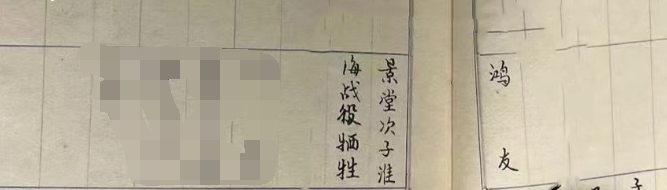 鸿友
景堂次子淮
海战役牺牲